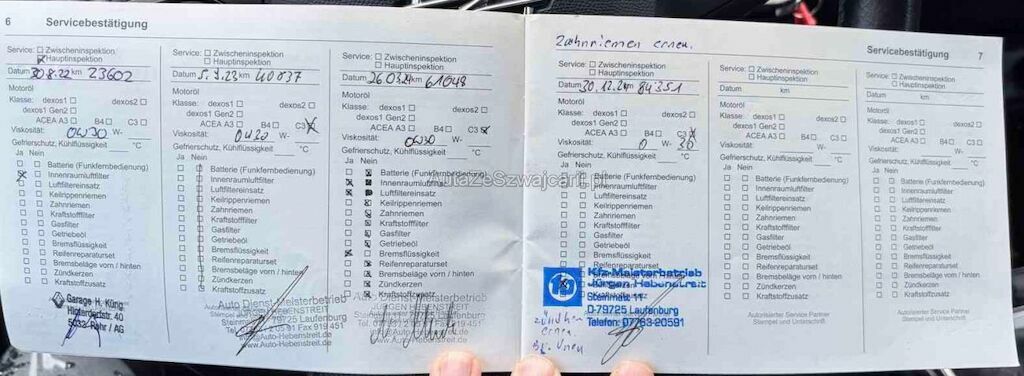 6 Servicebestätigung
Service: Zwischeninspektion
Hauptinspektion
Datum 30.8.22 km 23602
Motoröl
Klasse: dexos1 dexos2
dexos1 Gen2
ACEA A3 B4 C3
Viskosität: 0W30 W-
Gefrierschutz, Kühlflüssigkeit °C
Ja Nein
Batterie (Funkfernbedienung)
Innenraumluftfilter
Luftfiltereinsatz
Keilrippenriemen
Zahnriemen
Kraftstofffilter
Gasfilter
Getriebeöl
Bremsflüssigkeit
Reifenreparaturset
Bremsbeläge vorn / hinten
Zündkerzen
Kraftstoffzusatz
Garage H. Küng
Hinterdorfstr. 40
5032 Rohr / AG
Service: Zwischeninspektion
Hauptinspektion
Datum 5.9.23 km 40037
Motoröl
Klasse: dexos1 dexos2
dexos1 Gen2
ACEA A3 B4 C3
Viskosität: 0W20 W-
Gefrierschutz, Kühlflüssigkeit °C
Ja Nein
Batterie (Funkfernbedienung)
Innenraumluftfilter
Luftfiltereinsatz
Keilrippenriemen
Zahnriemen
Kraftstofffilter
Gasfilter
Getriebeöl
Bremsflüssigkeit
Reifenreparaturset
Bremsbeläge vorn / hinten
Zündkerzen
Kraftstoffzusatz
Auto Dienst-Meisterbetrieb
JÜRGEN HEBENSTREIT
www.Auto-Hebenstreit.de
Service: Zwischeninspektion
Hauptinspektion
Datum 26.03.24 km 61048
Motoröl
Klasse: dexos1 dexos2
dexos1 Gen2
ACEA A3 B4 C3
Viskosität: 0W30 W-
Gefrierschutz, Kühlflüssigkeit °C
Ja Nein
Batterie (Funkfernbedienung)
Innenraumluftfilter
Luftfiltereinsatz
Keilrippenriemen
Zahnriemen
Kraftstofffilter
Gasfilter
Getriebeöl
Bremsflüssigkeit
Reifenreparaturset
Bremsbeläge vorn / hinten
Zündkerzen
Kraftstoffzusatz
Auto Dienst-Meisterbetrieb
JÜRGEN HEBENSTREIT
www.Auto-Hebenstreit.de
AutazeSzwajcarii.pl
Zahnriemen erneu.
Servicebestätigung 7
Service: Zwischeninspektion
Hauptinspektion
Datum 30.12.24 km 84351
Motoröl
Klasse: dexos1 dexos2
dexos1 Gen2
ACEA A3 B4 C3
Viskosität: 0 W- 30
Gefrierschutz, Kühlflüssigkeit °C
Ja Nein
Batterie (Funkfernbedienung)
Innenraumluftfilter
Luftfiltereinsatz
Keilrippenriemen
Zahnriemen
Kraftstofffilter
Gasfilter
Getriebeöl
Bremsflüssigkeit
Reifenreparaturset
Kfz-Meisterbetrieb
Jürgen Hebenstreit
Steinmatt 11
D-79725 Laufenburg
Telefon: 07763-20591
Service: Zwischeninspektion
Hauptinspektion
Datum km
Motoröl
Klasse: dexos1 dexos2
dexos1 Gen2
ACEA A3 B4 C3
Viskosität: W-
Gefrierschutz, Kühlflüssigkeit °C
Ja Nein
Batterie (Funkfernbedienung)
Innenraumluftfilter
Luftfiltereinsatz
Keilrippenriemen
Zahnriemen
Kraftstofffilter
Gasfilter
Getriebeöl
Bremsflüssigkeit
Reifenreparaturset
Bremsbeläge vorn / hinten
Zündkerzen
Kraftstoffzusatz
Autorisierter Service Partner
Stempel und Unterschrift
Service: Zwischeninspektion
Hauptinspektion
Datum km
Motoröl
Klasse: dexos1 dexos2
dexos1 Gen2
ACEA A3 B4 C3
Viskosität: W-
Gefrierschutz, Kühlflüssigkeit °C
Ja Nein
Batterie (Funkfernbedienung)
Innenraumluftfilter
Luftfiltereinsatz
Keilrippenriemen
Zahnriemen
Kraftstofffilter
Gasfilter
Getriebeöl
Bremsflüssigkeit
Reifenreparaturset
Bremsbeläge vorn / hinten
Zündkerzen
Kraftstoffzusatz
Autorisierter Service Partner
Stempel und Unterschrift